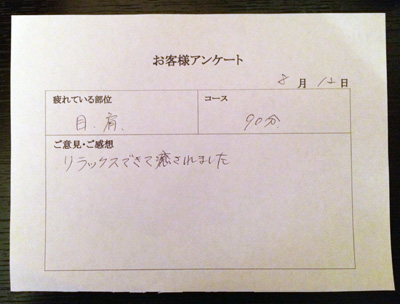 お客様アンケート
8月12日
疲れている部位
コース
目、肩、
90分
ご意見・ご感想
リラックスできて癒されました